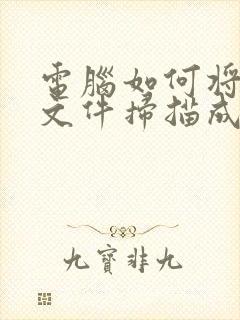 電腦如何將
文件掃描成
九寶非九